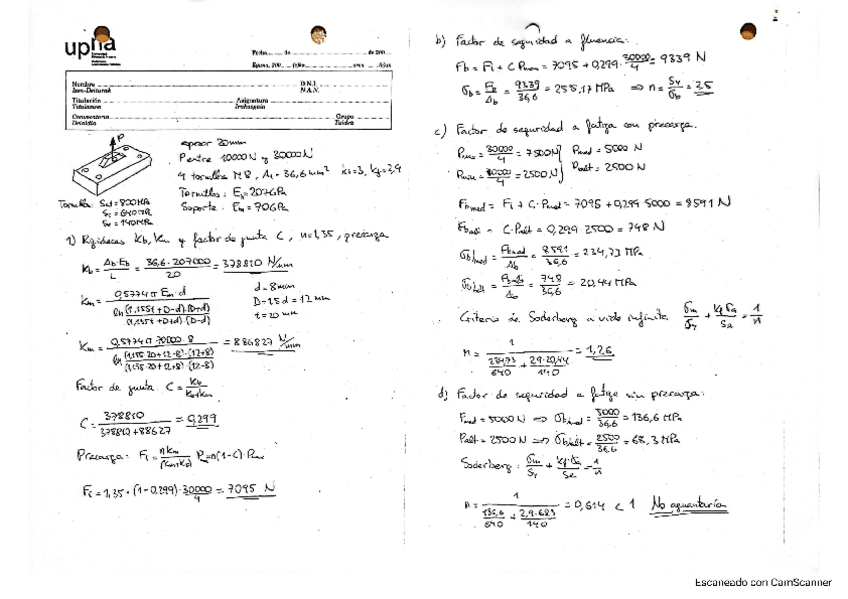 upna
Fecha ... de ... de 200...
Nombre
Izen-Deiturak
D.N.I.
N.A.N.
Titulación
Titulazioa
Asignatura
Irakasgaia
Convocatoria
Deialdia
Grupo
Taldea
P
espesor 20mm
P entre 10000N y 30000N
4 tornillos M8, At=36,6 mm²
Tornillos: Eb=207GPa
Soporte: Em=70GPa
Tornillo: Sut=800MPa
Sy=640MPa
Se=140MPa
Rigideces Kb, Km y factor de junta C, n=1,35, precarga
Kb = Ab·Eb / L = 36,6·207000 / 20 = 378810 N/mm
Km = 0,5774 π Em·d / ln (1,155t+D-d)·(D+d) / (1,155t+D+d)·(D-d)
d=8mm
D=1,5d=12mm
t=20mm
Km = 0,5774 π 70000·8 / ln (1,155·20+12-8)·(12+8) / (1,155·20+12+8)·(12-8) = 886827 N/mm
Factor de junta: C = Kb / Kb+Km
C = 378810 / 378810+88627 = 0,299
Precarga: Fi = n Km / (Km+Kb) P = n(1-C)·Pmax
Fi = 1,35·(1-0,299)·30000/4 = 7095 N
b) Factor de seguridad a fluencia:
Fb = Fi + C Pmax = 7095 + 0,299·30000/4 = 9339 N
σb = Fb/Ab = 9339/36,6 = 255,17 MPa ⇒ n = Sy/σb = 2,5
c) Factor de seguridad a fatiga con precarga.
Pmax = 30000/4 = 7500N Pmed = 5000 N
Pmin = 10000/4 = 2500N Palt = 2500 N
Fbmed = Fi + C·Pmed = 7095 + 0,299·5000 = 8591 N
Fbalt = C·Palt = 0,299·2500 = 748 N
σbmed = Fbmed/Ab = 8591/36,6 = 234,73 MPa
σbalt = Fbalt/Ab = 748/36,6 = 20,44 MPa
Criterio de Soderberg a vida infinita σm/Sy + Kf σa/Se = 1/n
n = 1 / 234,73/640 + 2,9·20,44/140 = 1,26
d) Factor de seguridad a fatiga sin precarga:
Pmed = 5000N ⇒ σbmed = 5000/36,6 = 136,6 MPa
Palt = 2500 N ⇒ σbalt = 2500/36,6 = 68,3 MPa
Soderberg: σm/Sy + Kf·σa/Se = 1/n
n = 1 / 136,6/640 + 2,9·68,3/140 = 0,614 < 1 No aguantarían
Escaneado con CamScanner